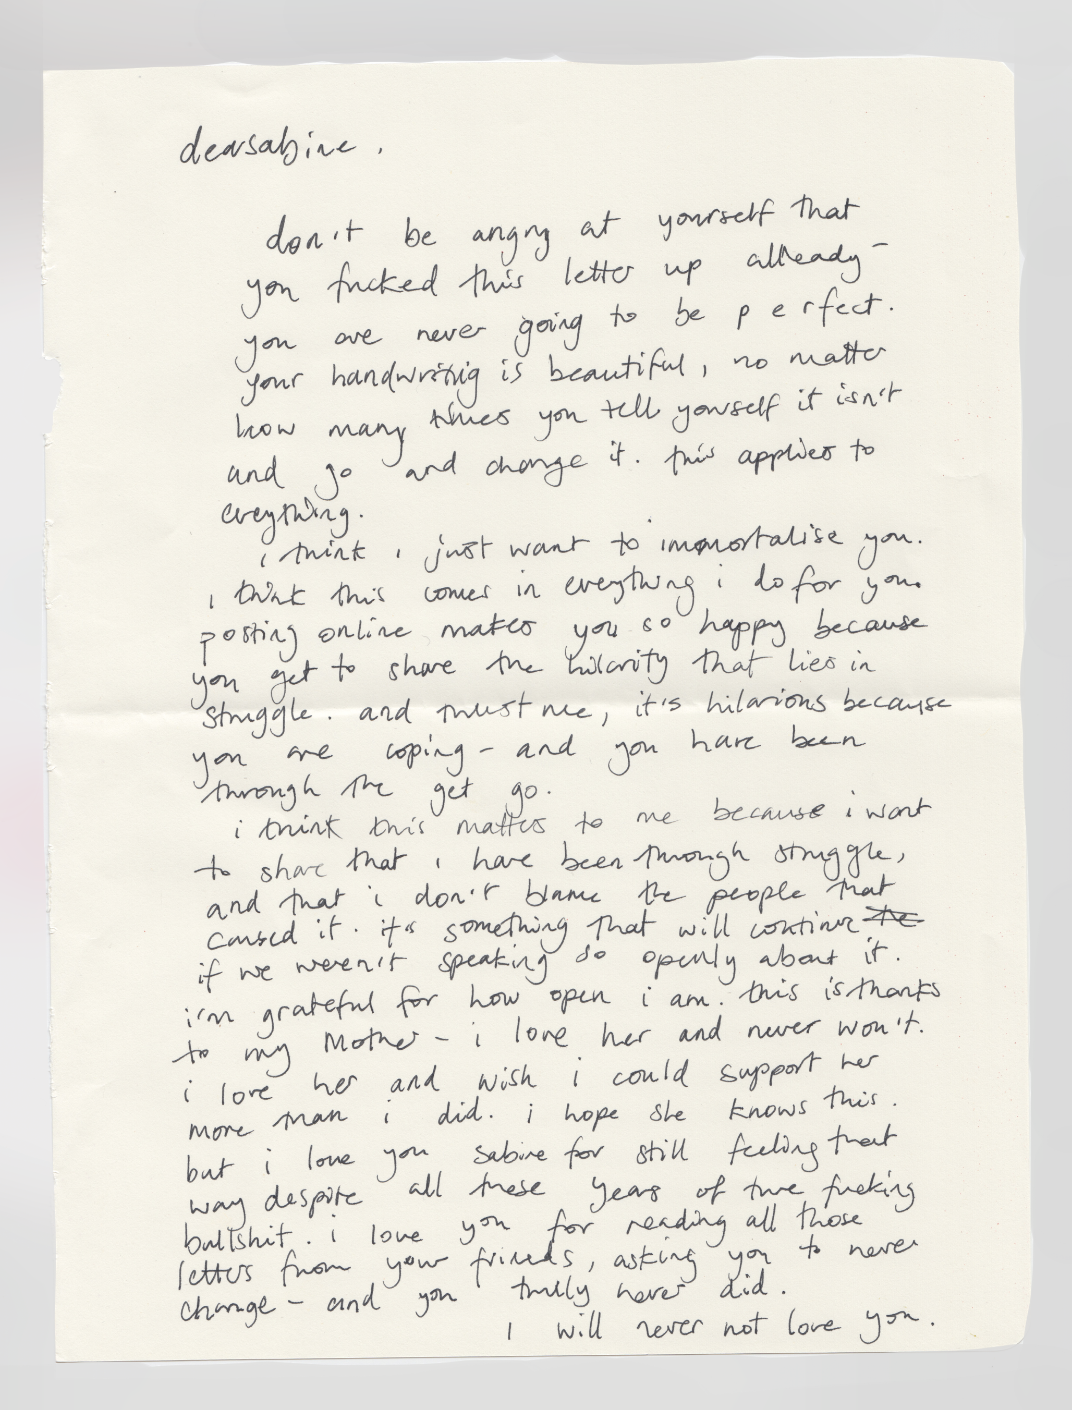 dearsabine,
don't be angry at yourself that
you fucked this letter up allready –
you are never going to be perfect.
your handwritig is beautiful, no matter
how many times you tell yourself it isn't
and go and change it. this applies to
everything.
i think i just want to immortalise you.
i think this comes in everything i do for you.
posting online makes you so happy because
you get to share the hilarity that lies in
struggle. and trust me, it's hilarious because
you are coping – and you have been
through the get go.
i think this matters to me because i want
to share that i have been through struggle,
and that i don't blame the people that
caused it. it's something that will continue the
if we weren't speaking so openly about it.
i'm grateful for how open i am. this is thanks
to my Mother – i love her and never won't.
i love her and wish i could support her
more than i did. i hope she knows this.
but i love you sabine for still feeling that
way despite all these years of true fucking
bullshit. i love you for reading all those
letters from your friends, asking you to never
change – and you trully never did.
I will never not love you.